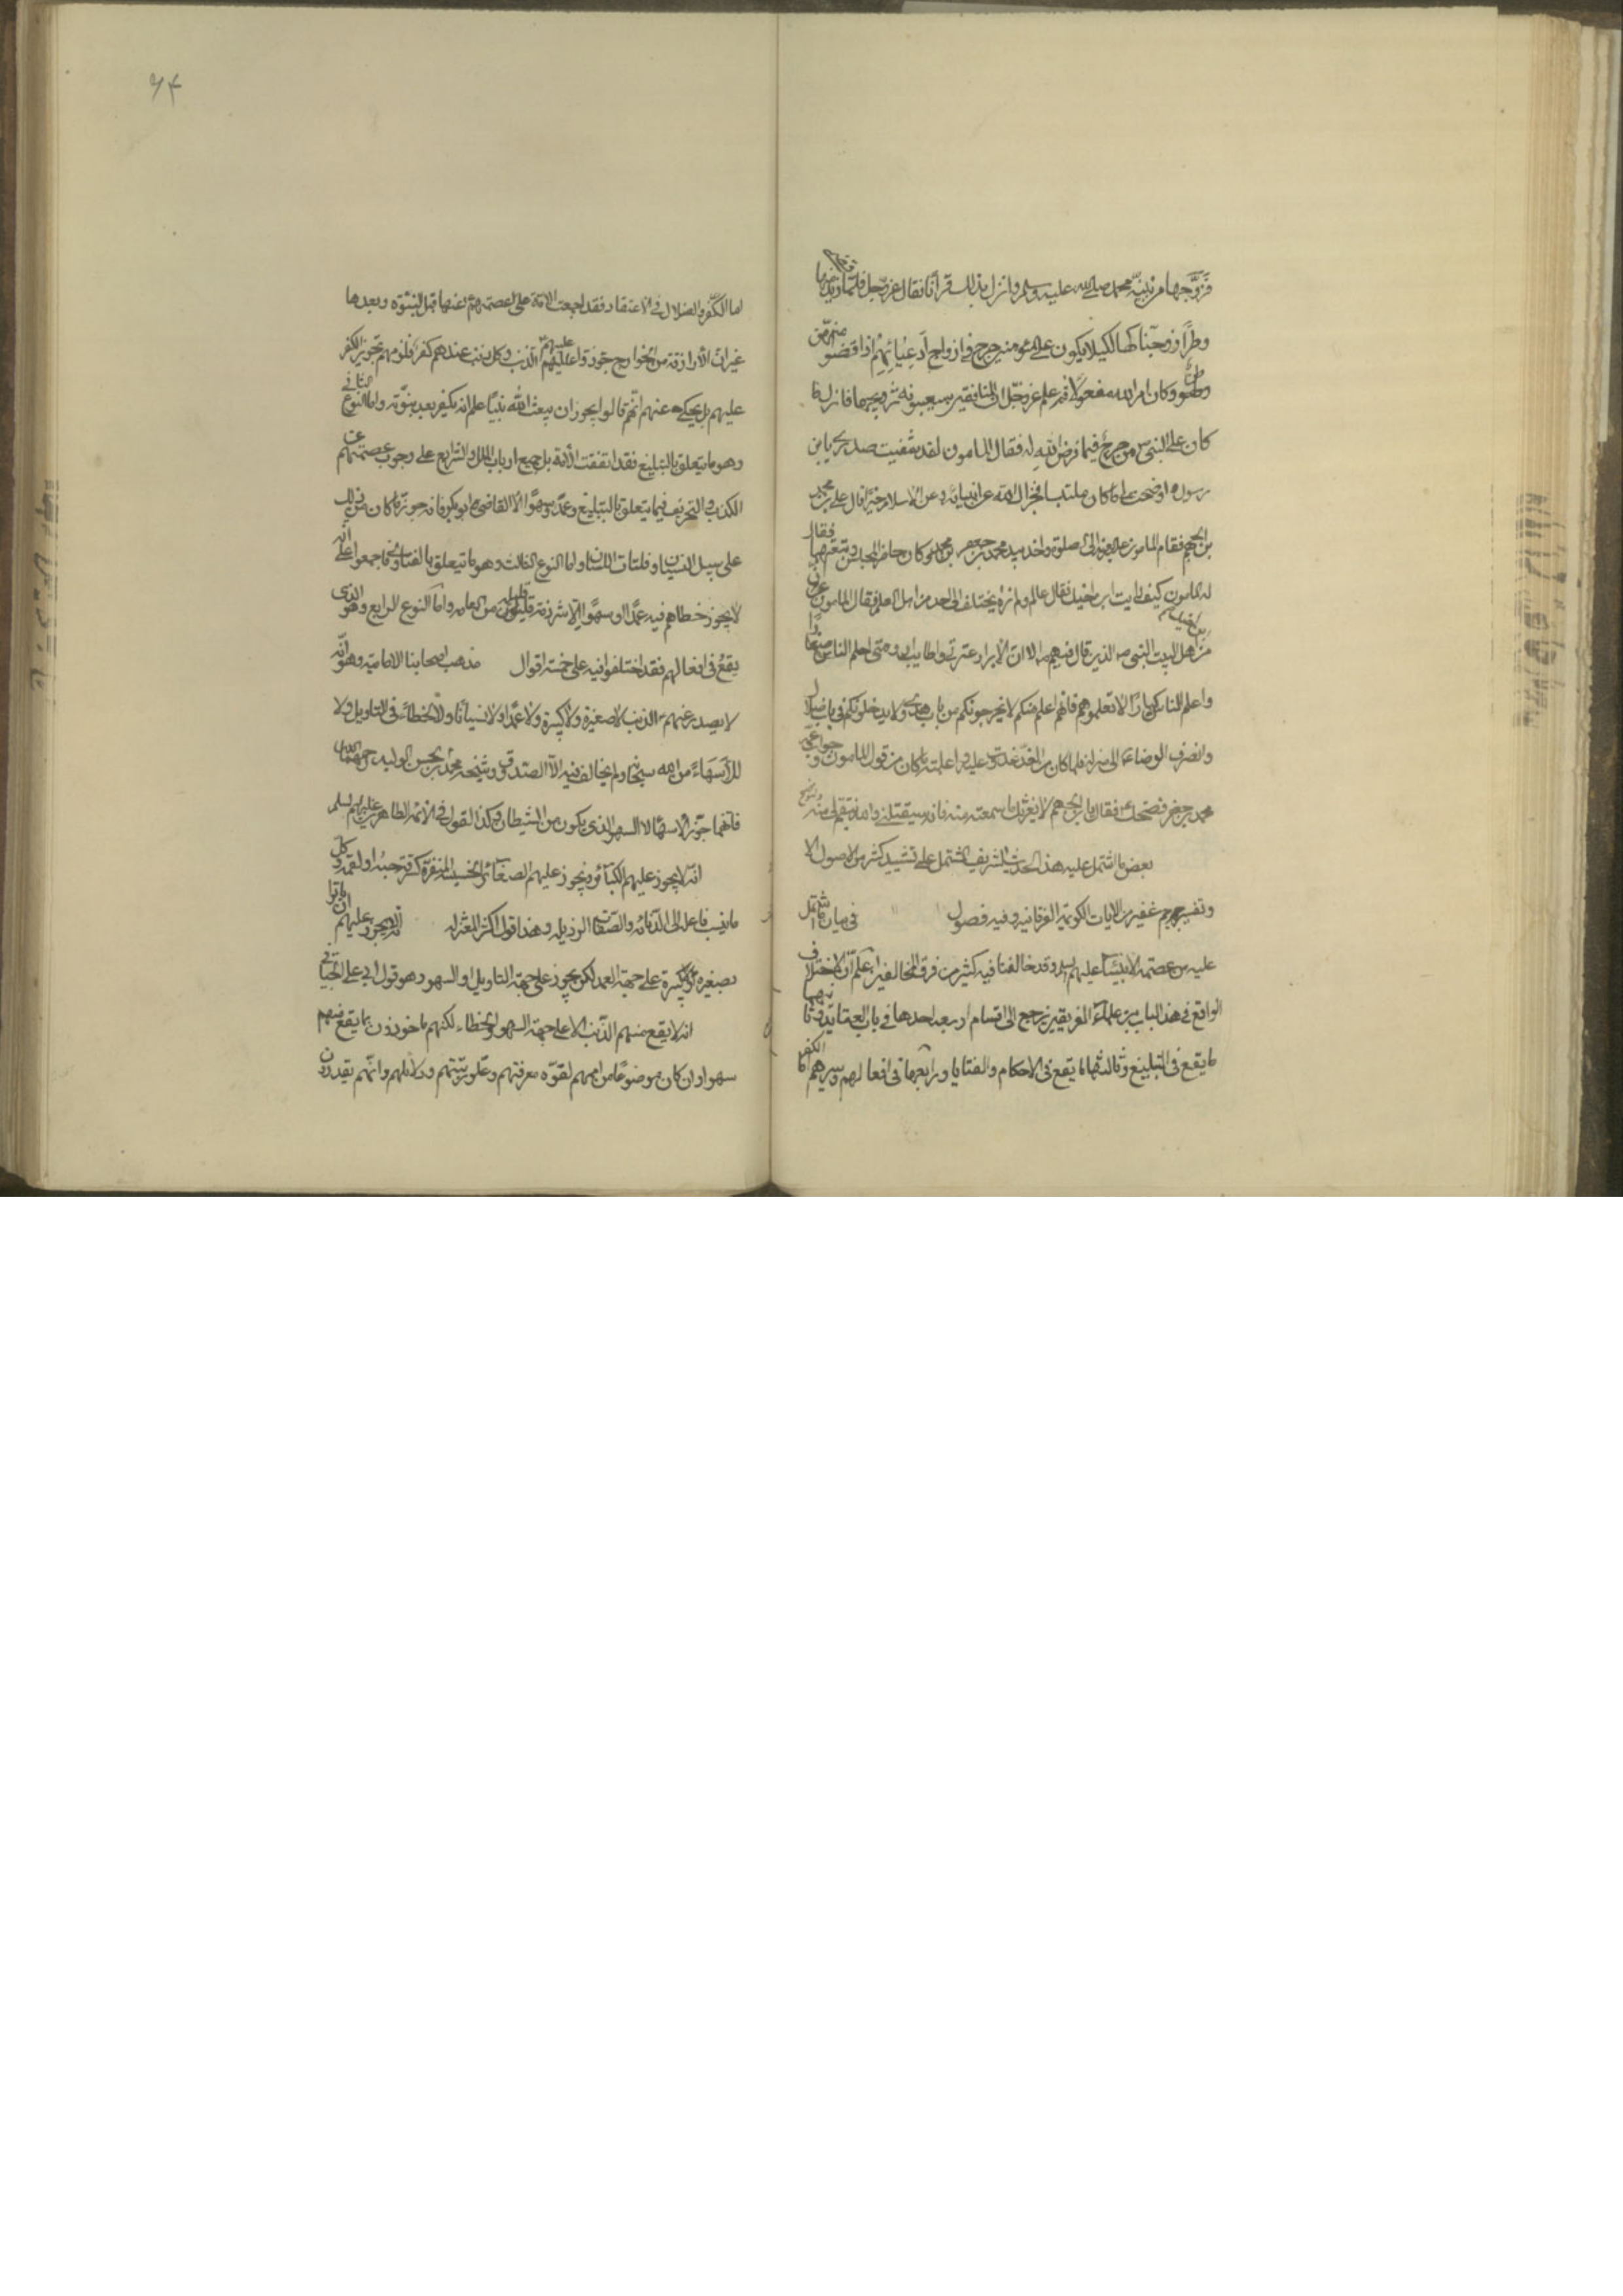 فزوجها من نبيه محمد صلى الله عليه وسلم وانزل بذلك قرآنا فقال عز وجل فلما قضى زيد منها
وطرا زوجناكها لكيلا يكون على المؤمنين حرج في ازواج ادعيائهم اذا قضوا منهن
وطرا وكان امر الله مفعولا ثم علم عز وجل ان المنافقين سيعيبونه بتزويجها فانزل ما
كان على النبي من حرج فيما فرض الله له فقال المامون لقد شفيت صدري يا بن
رسول الله واوضحت لي ما كان ملتبسا فجزاك الله عن انبيائه وعن الاسلام خيرا قال علي بن محمد
بن الجهم فقام المامون الى الصلوة واخذ بيد محمد بن جعفر بن محمد وكان حاضر المجلس وتبعتهما فقال
له المامون كيف رايت ابن اخيك فقال عالم ولم نره يختلف الى احد من اهل العلم فقال المامون ان ابن اخيك
من اهل البيت النبي الذين قال فيهم الا ان الابرار عترتي واطايب ارومتي احلم الناس صغارا
واعلم الناس كبارا لا تعلموهم فانهم اعلم منكم لا يخرجونكم من باب هدى ولا يدخلونكم في باب ضلال
وانصرف الرضا الى منزله فلما كان من الغد غدوت عليه واعلمته ما كان من قول المامون وجواب عمه
محمد بن جعفر فضحك فقال يا بن الجهم لا يغرنك ما سمعته منه فانه سيقتلني والله ينتقم لي منه
بعض ما اشتمل عليه هذا الحديث الشريف المشتمل على تشييد كثير من الاصول
وتفسير جم غفير من الايات الكريمة الفرقانيه وفيه فصول في بيان ما اشتمل
عليه من عصمة الانبياء عليهم السلم وقد خالفنا فيه كثير من فرق المخالفين اعلم ان الاختلاف
الواقع في هذا الباب بين علماء الفريقين يرجع الى اقسام اربعه احدها في باب العقايد وثانيها
ما يقع في التبليغ وثالثها ما يقع في الاحكام والفتايا ورابعها في افعالهم وسيرهم اما الكفر
اما الكفر والضلال في الاعتقاد فقد اجمعت الامة على عصمتهم عنها قبل النبوة وبعدها
غير ان الازارقة من الخوارج جوزوا عليهم الذنب وكل ذنب عندهم كفر فلزمهم تجويز الكفر
عليهم بل يحكى عنهم انهم قالوا يجوز ان يبعث الله نبيا علم انه يكفر بعد نبوته واما النوع الثاني
وهو ما يتعلق بالتبليغ فقد اتفقت الامة بل جميع ارباب الملل والشرايع على وجوب عصمتهم عن
الكذب والتحريف فيما يتعلق بالتبليغ عمدا وسهوا الا القاضي ابو بكر فانه جوز ما كان من ذلك
على سبيل النسيان وفلتات اللسان واما النوع الثالث وهو ما يتعلق بالفتيا فاجمعوا على انه
لا يجوز خطاهم فيه عمدا وسهوا الا شرذمة قليلة من العامه واما النوع الرابع وهو الذي
يقع في افعالهم فقد اختلفوا فيه على خمسة اقوال مذهب اصحابنا الامامية وهو انه
لا يصدر عنهم الذنب لا صغيرة ولا كبيرة ولا عمدا ولا نسيانا ولا لخطاء في التاويل ولا
للاسهاء من الله سبحانه ولم يخالف فيه الا الصدوق وشيخه محمد بن الحسن الوليد رحمهما الله
فانهما جوزا الاسهاء لا السهو الذي يكون من الشيطان وكذا القول في الائمه الطاهرين عليهم السلم
انه لا يجوز عليهم الكبائر ويجوز عليهم الصغائر الا الخسيسة المنفرة كسرقة حبه او لقمه وكل
ما ينسب فاعله الى الدناءه والضعة الرذيله وهذا قول اكثر المعتزله انه لا يجوز عليهم ان ياتوا
بصغيره ولا كبيرة على جهة العمد لكن يجوز على جهة التاويل او السهو وهو قول ابي علي الجبائي
انه لا يقع منهم الذنب الا على جهة السهو والخطاء لكنهم ماخوذون بما يقع منهم
سهوا وان كان موضوعا من اممهم لقوه معرفتهم وعلو رتبتهم ودلائلهم وانهم يقدرون